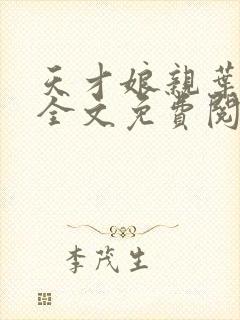 天才娘親葉
全文免費閱
李茂生